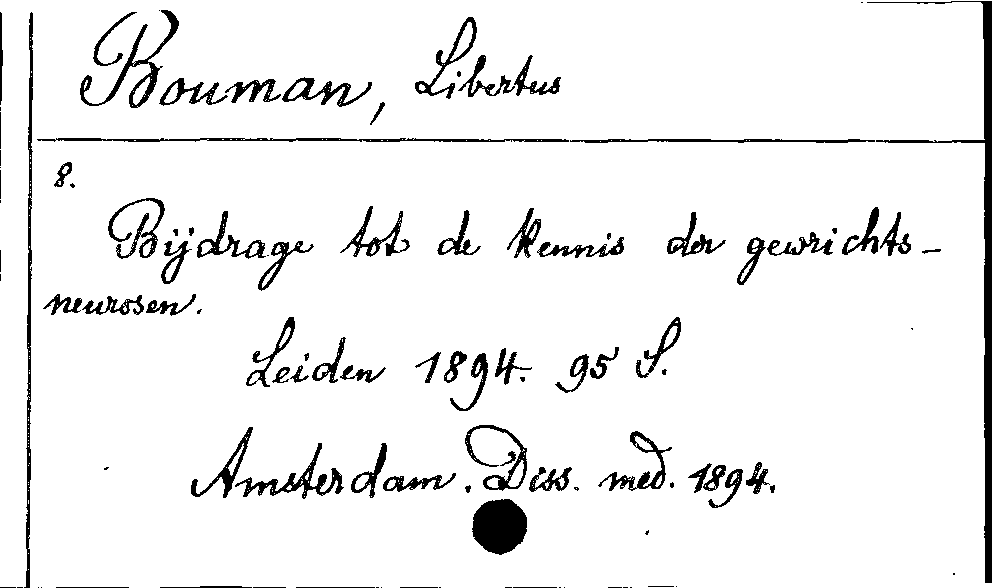 Bouman, Libertus
8.
Bijdrage tot de kennis der gewrichts-
neurosen.
Leiden 1894. 95 S.
Amsterdam. Diss. med. 1894.